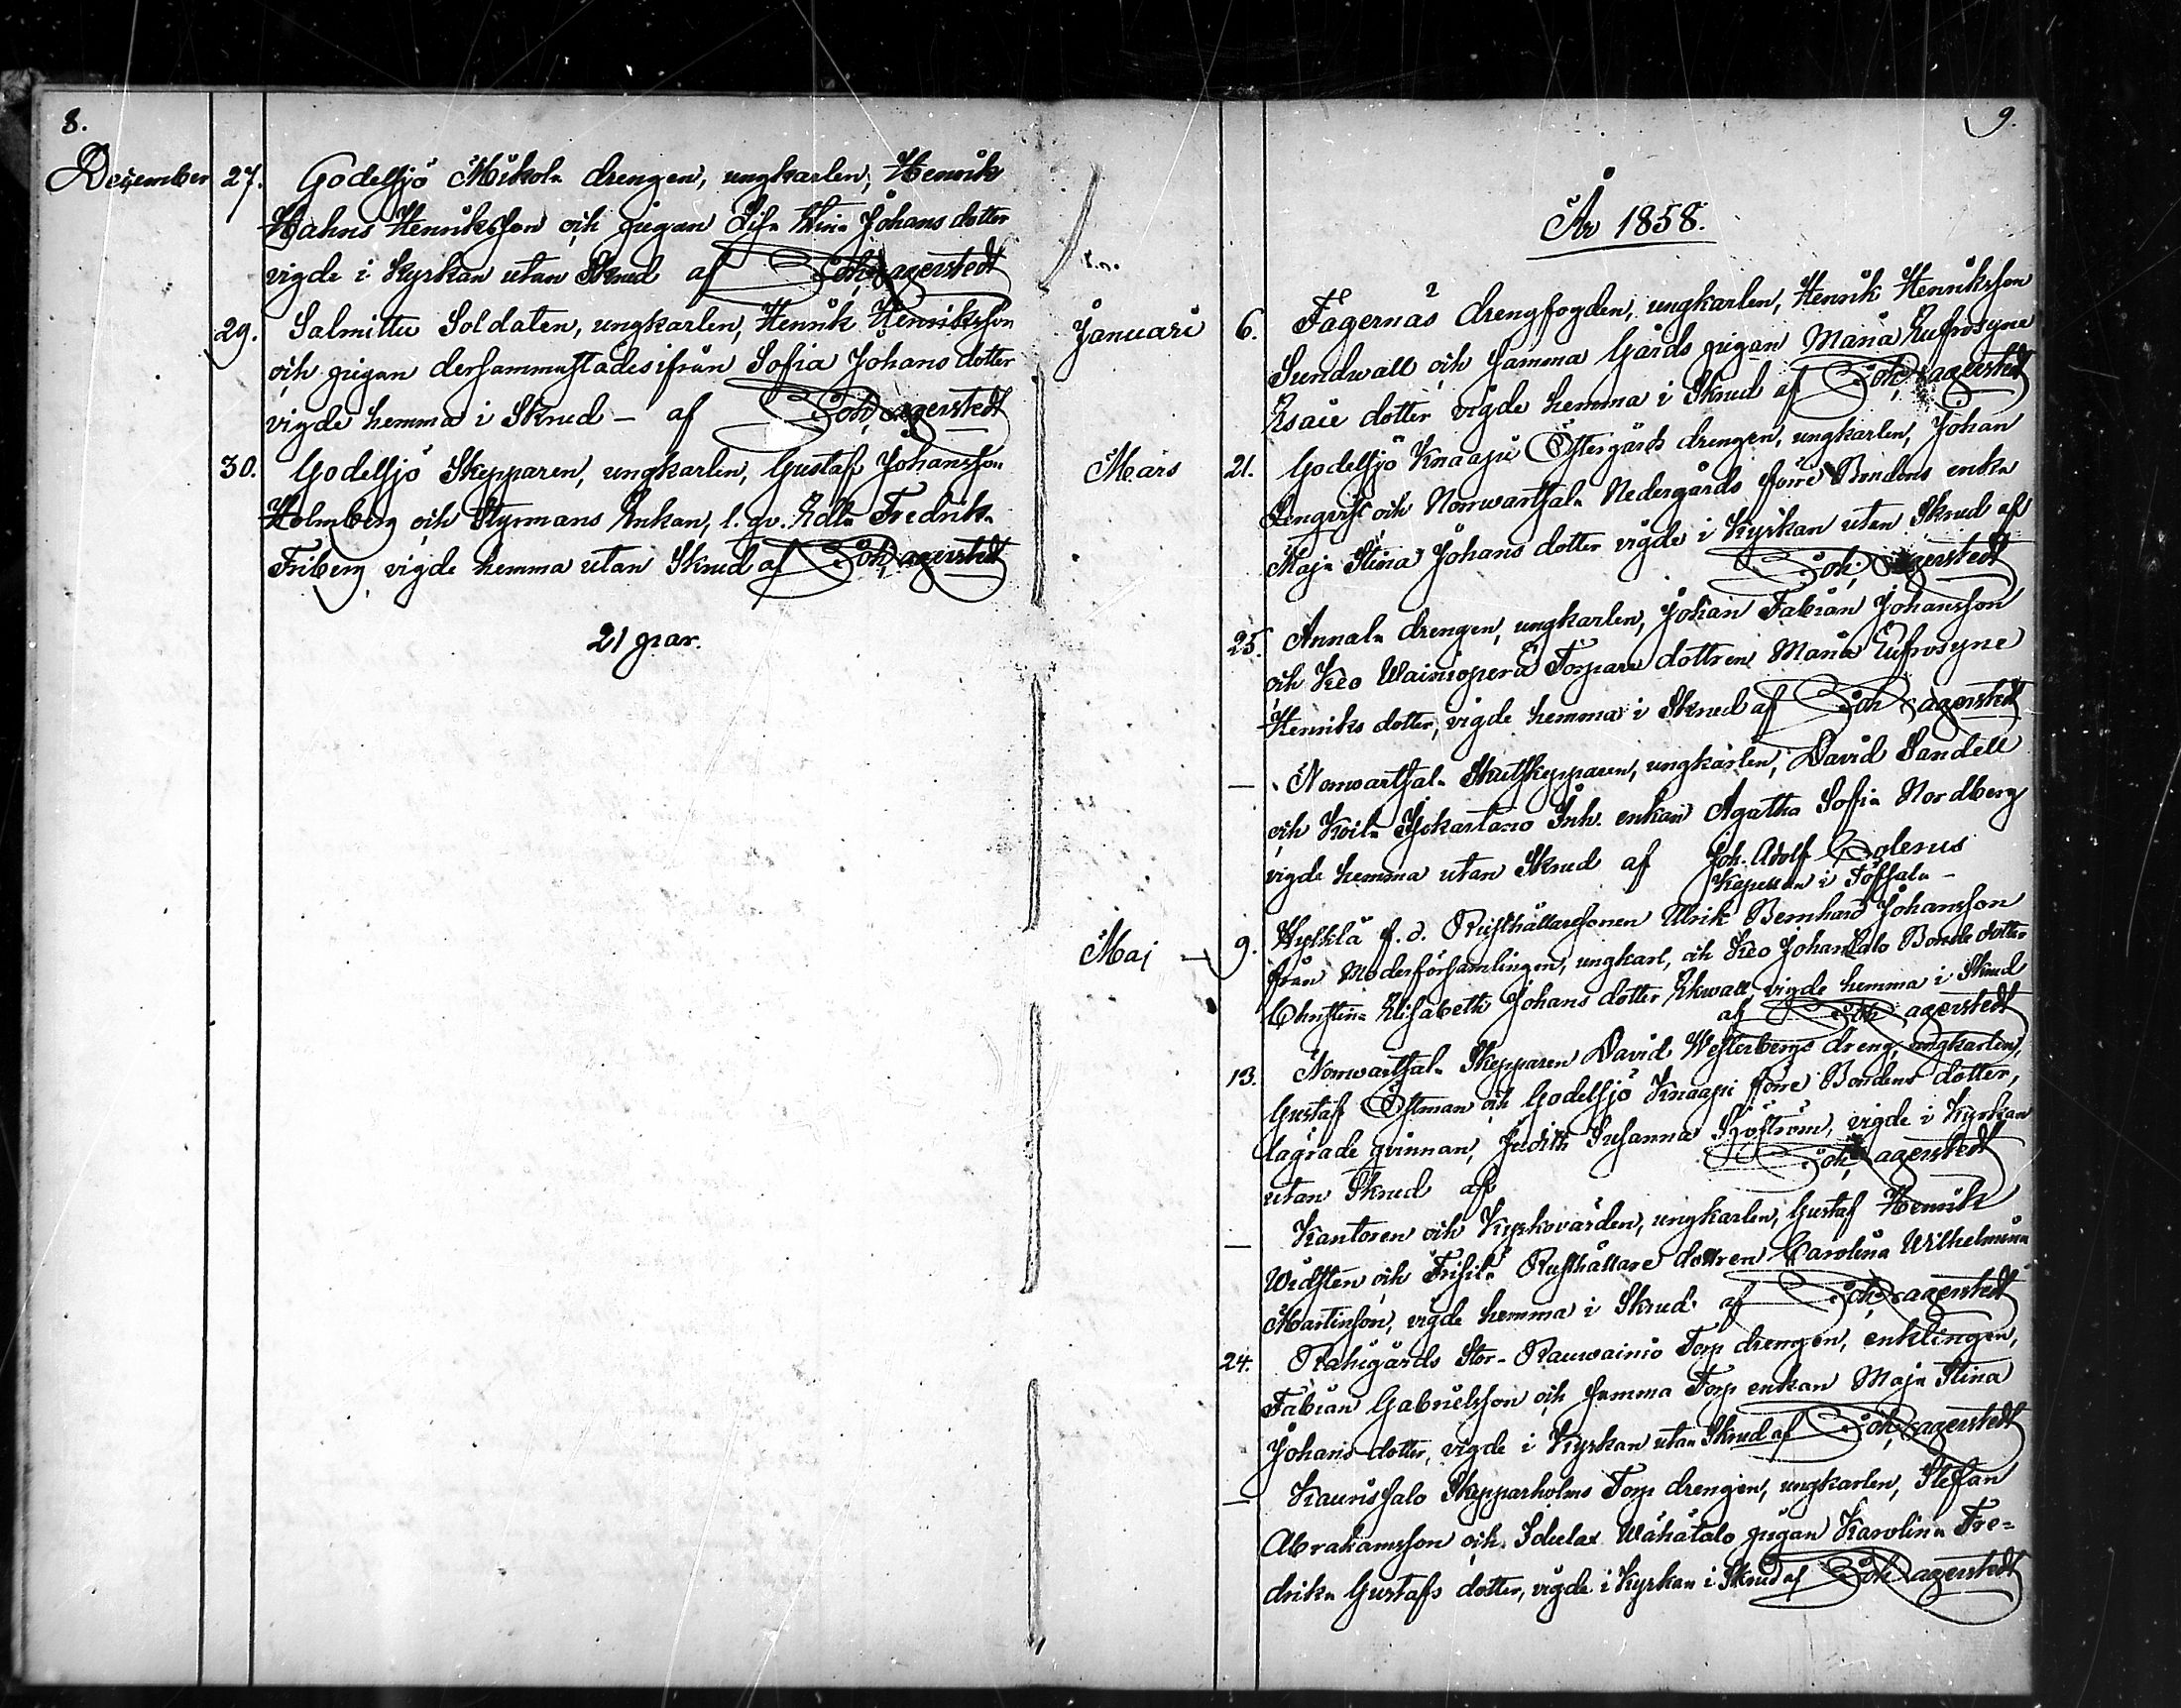 8.
December 27. Godelsjö Mikola drengen, ungkarlen, Henrik
Hahns Henriksson och pigan Lisa Stina Johans dotter
vigde i Kyrkan utan Skrud af Joh. Lagerstedt
29. Salmittu Soldaten, ungkarlen, Henrik Henriksson
och pigan dersammastädesifrån Sofia Johans dotter
vigde hemma i Skrud – af Joh. Lagerstedt
30. Godelsjö Skepparen, ungkarlen, Gustaf Johansson
Holmberg och Styrmans Enkan, l. qv. Edla Fredrika
Friberg, vigde hemma utan Skrud af Joh. Lagerstedt
21 par.
9.
År 1858.
Januari 6. Fagernäs drengfogden, ungkarlen, Henrik Henriksson
Sundwall och samma Gårds pigan Maria Eufrosyne
Esaie dotter vigde hemma i Skrud af Joh. Lagerstedt
Mars 21. Godelsjö Knaapi Östergårds drengen, ungkarlen, Johan
Lengvist och Norrwartsala Nedergårds förre Bondens enka
Maja Stina Johans dotter vigde i Kyrkan utan Skrud af
Joh. Lagerstedt
25. Annala drengen, ungkarlen, Johan Fabian Johansson
och Keo Wainioperä Torpare dottren Maria Eufrosyne
Henriks dotter, vigde hemma i Skrud af Joh. Lagerstedt
— Norrwartsala Skutskepparen, ungkarlen, David Sandell
och Koila Isokartano Inh. enkan Agatha Sofia Nordberg
vigde hemma utan Skrud af Joh. Adolf Polenus
Kapellan i Töfsala –
Maj – 9. Hylklä f. d. Rusthållaresonen Ulrik Bernhard Johansson
från Moderförsamlingen, ungkarl, och Keo Johansalo Bonde dotter
Christina Elisabeth Johans dotter Ekwall, vigde hemma i Skrud
af Joh. Lagerstedt
13. Norrwartsala Skepparen David Westerbergs dreng, ungkarlen,
Gustaf Östman och Godelsjö Knaapi förre Bondens dotter,
lägrade qvinnan, Judith Susanna Sjöström, vigde i Kyrkan
utan Skrud af Joh. Lagerstedt
— Kantoren och Kyrkovärden, ungkarlen, Gustaf Henrik
Widsten och Frisila Rusthållare dottren Carolina Wilhelmina
Martinson, vigde hemma i Skrud af Joh. Lagerstedt
24. Rahigårds Stor-Rauwainio Torp drengen, enklingen,
Fabian Gabrielsson och samma Torp enkan Maja Stina
Johans dotter, vigde i Kyrkan utan Skrud af Joh. Lagerstedt
— Kaurissalo Skepparholms Torp drengen, ungkarlen, Stefan
Abrahamsson och Wähätalo pigan Karolina Fre=
drika Gustafs dotter, vigde i Kyrkan i Skrud af Joh. Lagerstedt